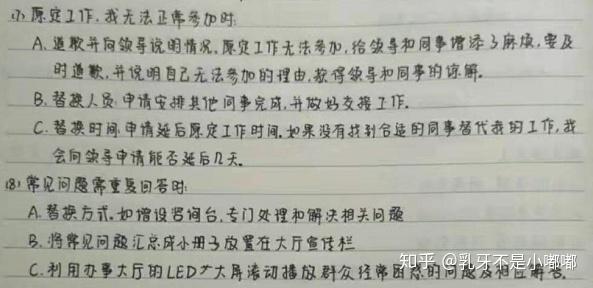 (7) 原定工作,我无法正常参加时:
A. 道歉并向领导说明情况。原定工作无法参加,给领导和同事增添了麻烦,要及
时道歉,并说明自己无法参加的理由,获得领导和同事的谅解。
B. 替换人员:申请安排其他同事完成,并做好交接工作。
C. 替换时间:申请延后原定工作时间。如果没有找到合适的同事替代我的工作,我
会向领导申请能否延后几天。
(8) 常见问题需重复回答时:
A. 替换方式。如增设咨询台,专门处理和解决相关问题
B. 将常见问题汇总成小册子放置在大厅宣传栏
C. 利用办事大厅的LED大屏滚动播放群众经常困惑的问题及相应解答。
知乎 @乳牙不是小嘟嘟